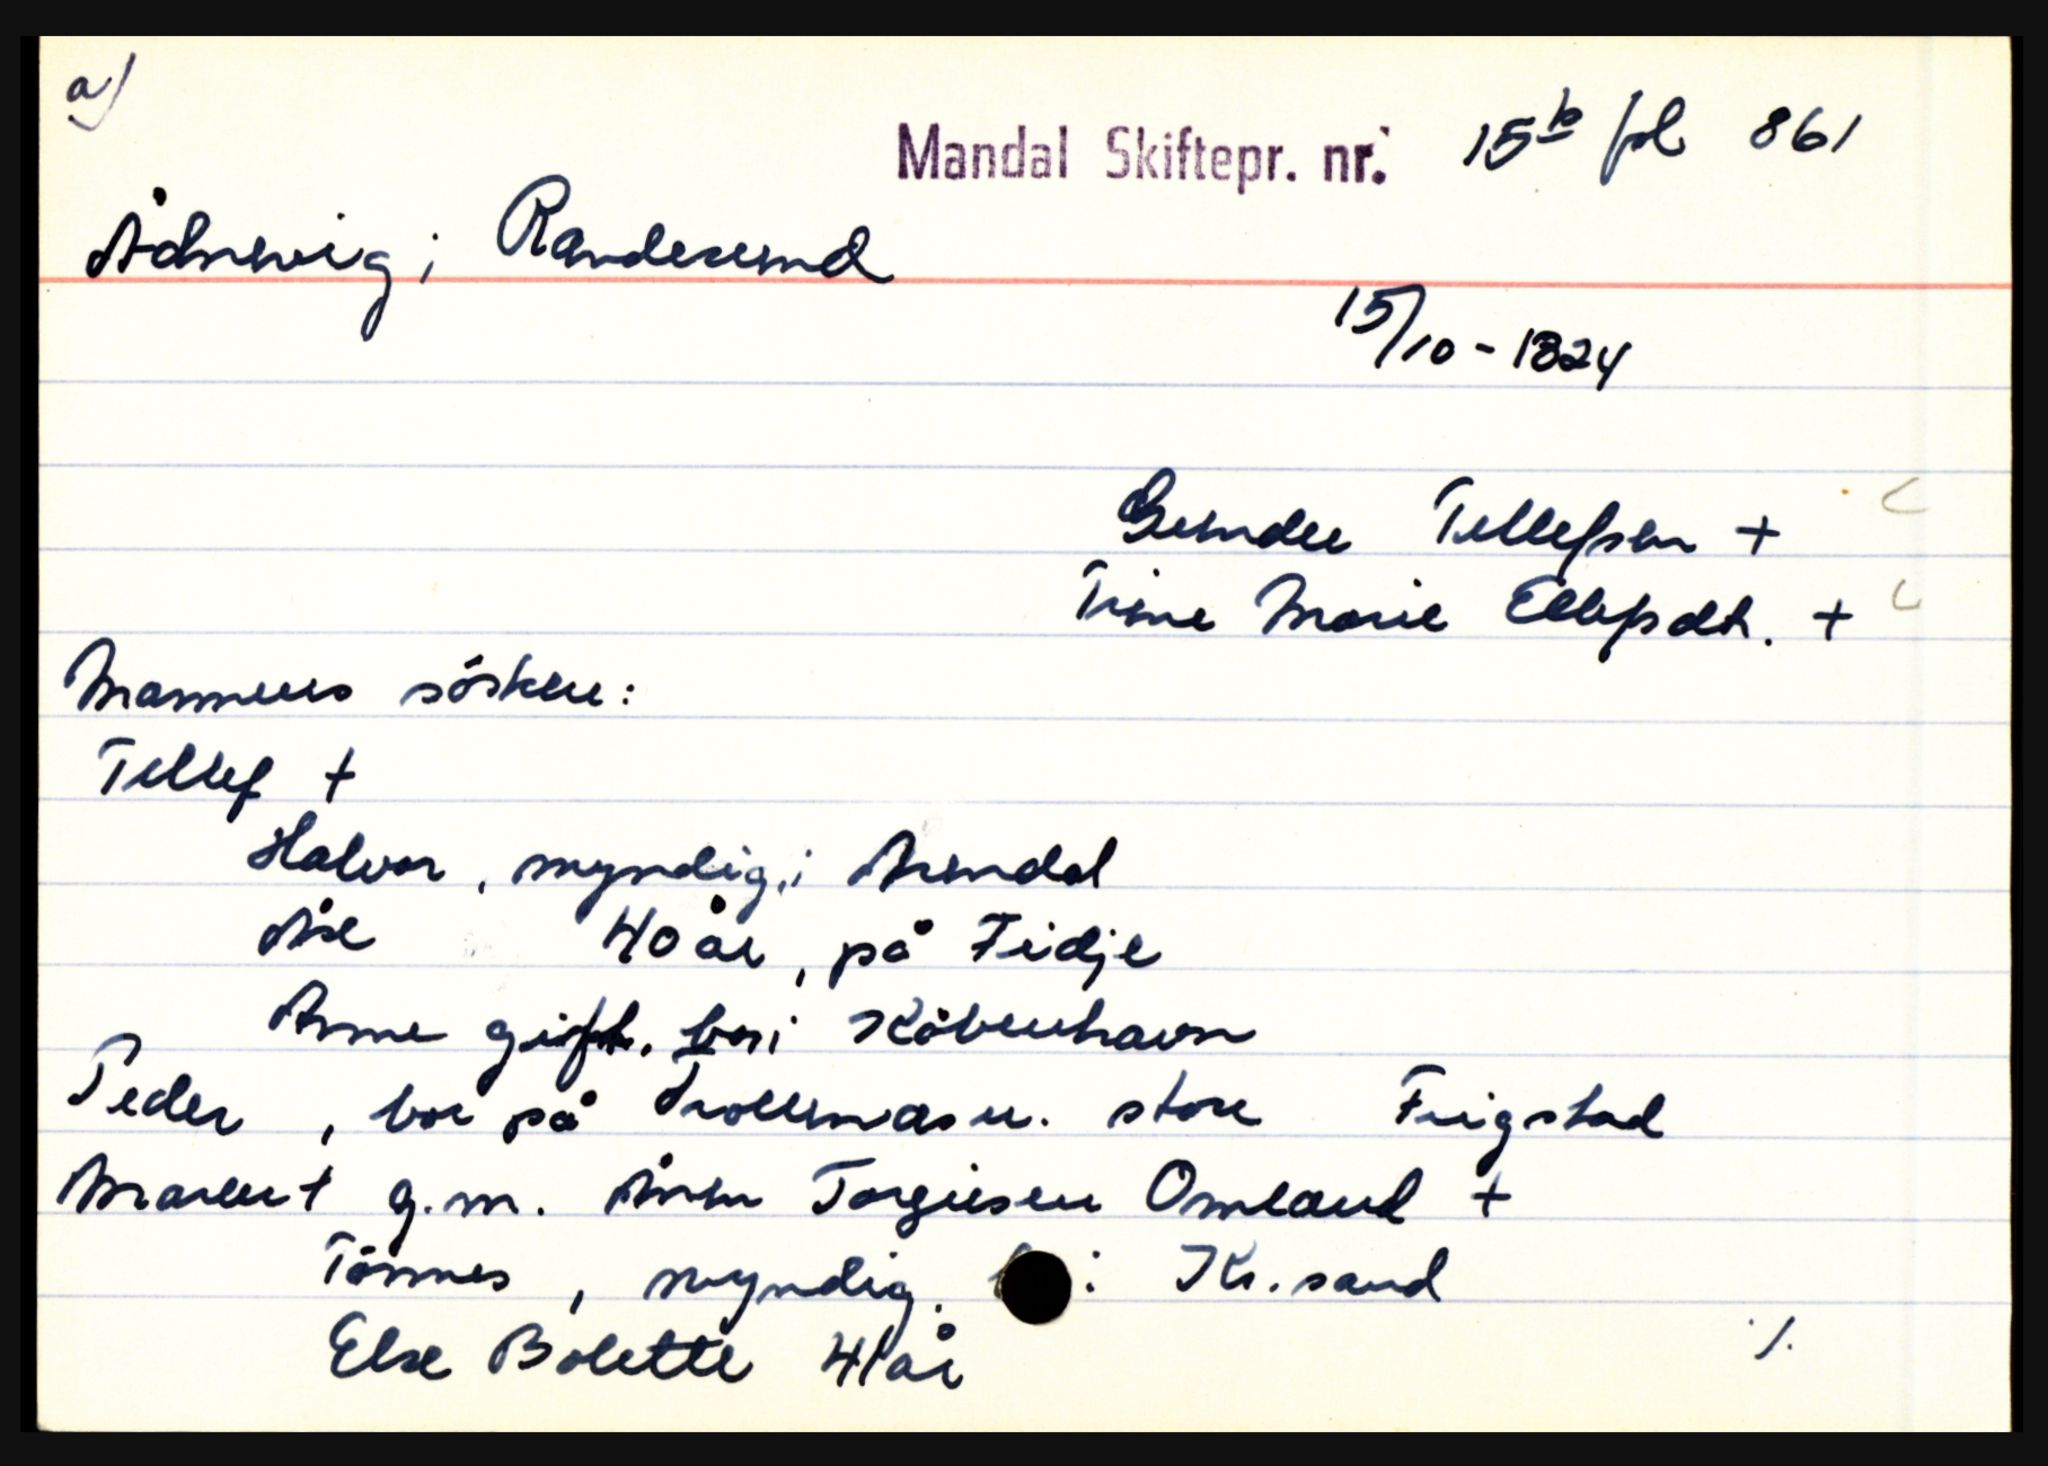 a)
Mandal Skiftepr. nr. 15b fol 861
Ådnevig i Randesund
15/10-1824
Gunder Tellefsen +
Trine Marie Ellefsdt. +
Mannens sösken:
Tellef +
Halvor, myndig, i Arendal
Åse 40 år, på Feidje
Anne gift. bor i Köbenhavn
Peder, bor på Trollnes u. store Frigstad
Maren + g.m. Ånen Torgiesen Omland +
Tönnes, myndig. i Kr.sand
Else Bolette 41 år
./.